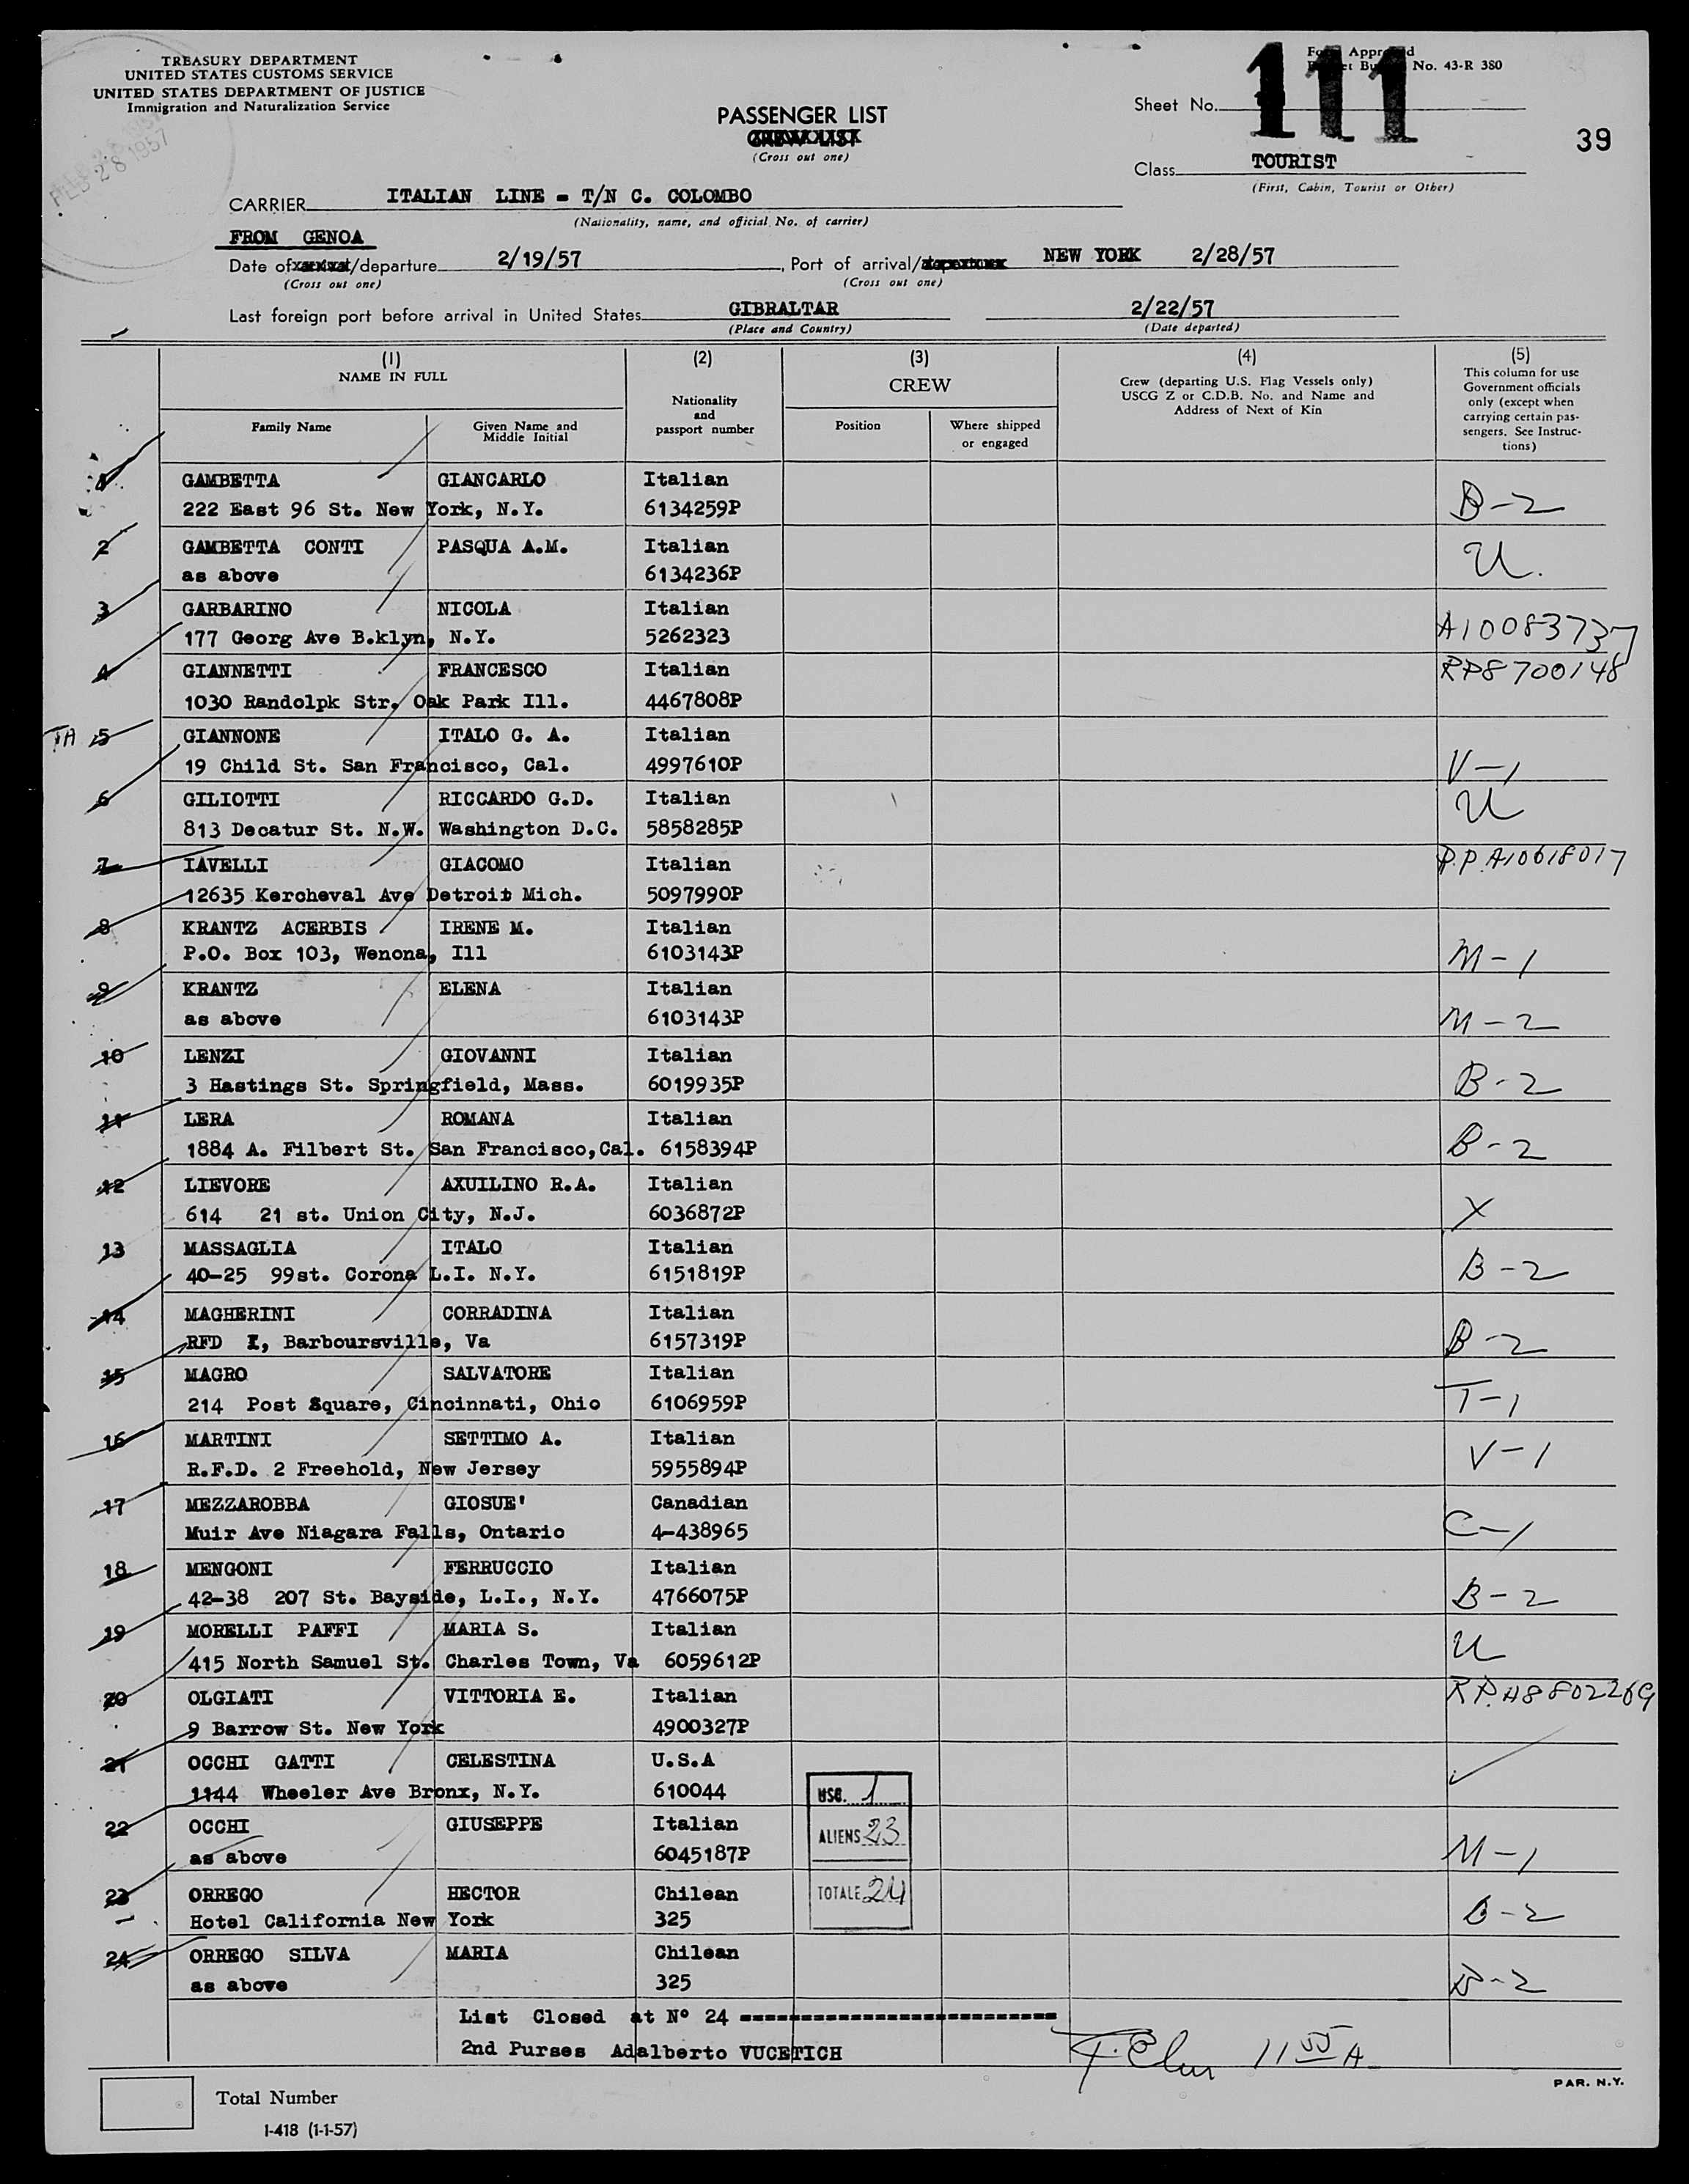 TREASURY DEPARTMENT
UNITED STATES CUSTOMS SERVICE
UNITED STATES DEPARTMENT OF JUSTICE
Immigration and Naturalization Service
FEB 28 1957
PASSENGER LIST
CREW LIST
(Cross out one)
No. 43-R 380
Sheet No. 111
39
Class TOURIST
(First, Cabin, Tourist or Other)
CARRIER ITALIAN LINE - T/N C. COLOMBO
(Nationality, name, and official No. of carrier)
FROM GENOA
Date of arrival/departure 2/19/57, Port of arrival/departure NEW YORK 2/28/57
(Cross out one) (Cross out one)
Last foreign port before arrival in United States GIBRALTAR 2/22/57
(Place and Country) (Date departed)
(1) NAME IN FULL
Family Name
Given Name and Middle Initial
(2)
Nationality and passport number
(3)
CREW
Position
Where shipped or engaged
(4)
Crew (departing U.S. Flag Vessels only)
USCG Z or C.D.B. No. and Name and
Address of Next of Kin
(5)
This column for use
Government officials
only (except when
carrying certain pas-
sengers. See Instruc-
tions)
1 GAMBETTA GIANCARLO Italian
222 East 96 St. New York, N.Y. 6134259P B-2
2 GAMBETTA CONTI PASQUA A.M. Italian U.
as above 6134236P
3 GARBARINO NICOLA Italian
177 Georg Ave B.klyn, N.Y. 5262323 A10083737
4 GIANNETTI FRANCESCO Italian RP8700148
1030 Randolpk Str. Oak Park Ill. 4467808P
TA 5 GIANNONE ITALO G. A. Italian
19 Child St. San Francisco, Cal. 4997610P V-1
6 GILIOTTI RICCARDO G.D. Italian U
813 Decatur St. N.W. Washington D.C. 5858285P
7 IAVELLI GIACOMO Italian R.P. A10618017
12635 Kercheval Ave Detroit Mich. 5097990P
8 KRANTZ ACERBIS IRENE M. Italian
P.O. Box 103, Wenona, Ill 6103143P M-1
9 KRANTZ ELENA Italian
as above 6103143P M-2
10 LENZI GIOVANNI Italian
3 Hastings St. Springfield, Mass. 6019935P B-2
11 LERA ROMANA Italian
1884 A. Filbert St. San Francisco,Cal. 6158394P B-2
12 LIEVORE AXUILINO R.A. Italian
614 21 st. Union City, N.J. 6036872P X
13 MASSAGLIA ITALO Italian
40-25 99st. Corona L.I. N.Y. 6151819P B-2
14 MAGHERINI CORRADINA Italian
RFD I, Barboursville, Va 6157319P B-2
15 MAGRO SALVATORE Italian
214 Post Square, Cincinnati, Ohio 6106959P T-1
16 MARTINI SETTIMO A. Italian
R.F.D. 2 Freehold, New Jersey 5955894P V-1
17 MEZZAROBBA GIOSUE' Canadian
Muir Ave Niagara Falls, Ontario 4-438965 C-1
18 MENGONI FERRUCCIO Italian
42-38 207 St. Bayside, L.I., N.Y. 4766075P B-2
19 MORELLI PAFFI MARIA S. Italian U
415 North Samuel St. Charles Town, Va 6059612P
20 OLGIATI VITTORIA E. Italian R.P. A8802269
9 Barrow St. New York 4900327P
21 OCCHI GATTI CELESTINA U.S.A
1144 Wheeler Ave Bronx, N.Y. 610044
22 OCCHI GIUSEPPE Italian
as above 6045187P M-1
23 ORREGO HECTOR Chilean
Hotel California New York 325 B-2
24 ORREGO SILVA MARIA Chilean
as above 325 B-2
USC. 1
ALIENS 23
TOTALE 24
List Closed at Nº 24
2nd Purses Adalberto VUCETICH
11 55 A
PAR. N.Y.
Total Number
I-418 (1-1-57)